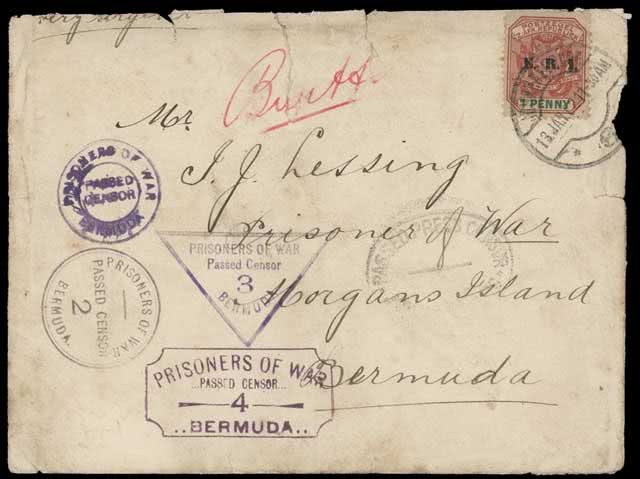 very urgent
Burtt
Mr.
I. J. Lessing
Prisoner of War
Morgans Island
Bermuda
E. R. I.
1 PENNY
PRISONERS OF WAR
PASSED
CENSOR
BERMUDA
PRISONERS OF WAR
PASSED CENSOR
2
BERMUDA
PRISONERS OF WAR
Passed Censor
3
BERMUDA
PASSED PRESS CENSOR
PRISONERS OF WAR
...PASSED CENSOR...
4
..BERMUDA..